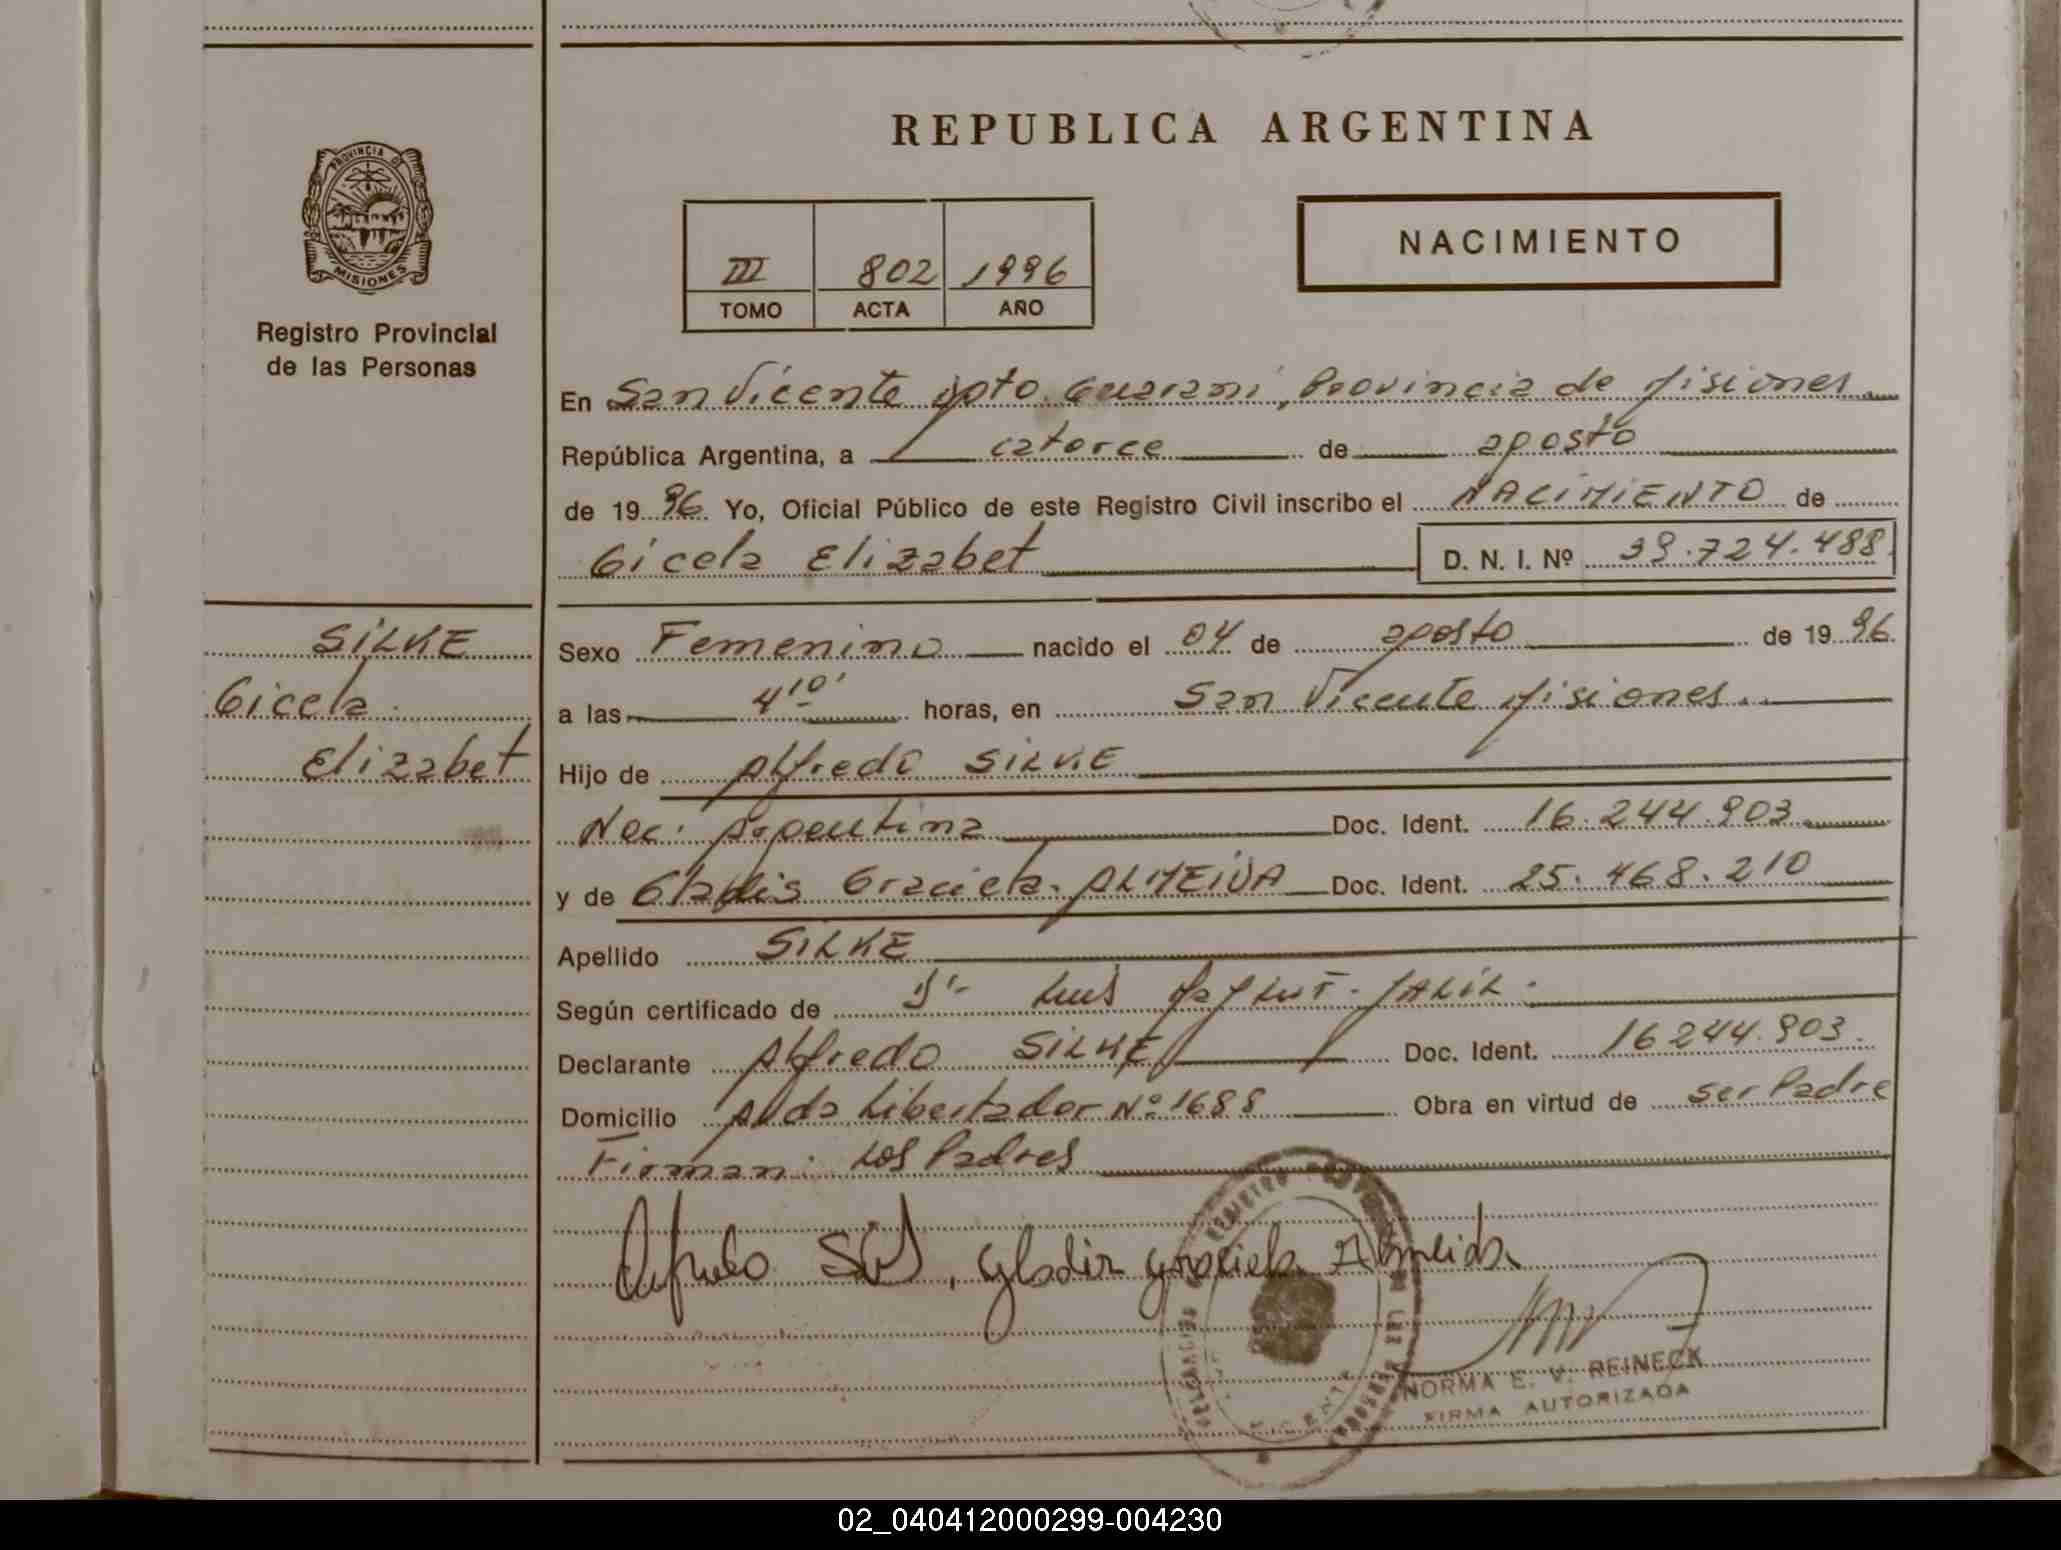 REPUBLICA ARGENTINA
PROVINCIA DE
MISIONES
Registro Provincial
de las Personas
III 802 1996
TOMO ACTA AÑO
NACIMIENTO
En San Vicente Dpto. Guaraní, Provincia de Misiones
República Argentina, a catorce de agosto
de 1996 Yo, Oficial Público de este Registro Civil inscribo el NACIMIENTO de
Gicela Elizabet D. N. I. Nº 39.724.488
SILKE
Gicela
Elizabet
Sexo Femenino nacido el 04 de agosto de 1996
a las 4 10' horas, en San Vicente Misiones.
Hijo de Alfredo SILKE
Nac: Argentina Doc. Ident. 16.244.903
y de Gladis Graciela ALMEIDA Doc. Ident. 25.468.210
Apellido SILKE
Según certificado de Dr Luis
Declarante Alfredo SILKE Doc. Ident. 16244.903.
Domicilio Avda Libertador Nº 1688 Obra en virtud de ser Padre
Firman: Los Padres
Alfredo , Gladir Graciela Almeida
NORMA E. V. REINECK
FIRMA AUTORIZADA
02_040412000299-004230